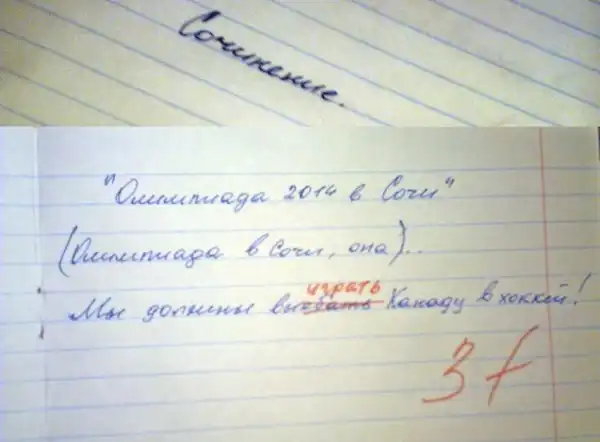 Сочинение.
"Олимпиада 2014 в Сочи"
(Олимпиада в Сочи, она)...
играть
Мы должны выебать Канаду в хоккей!
3+